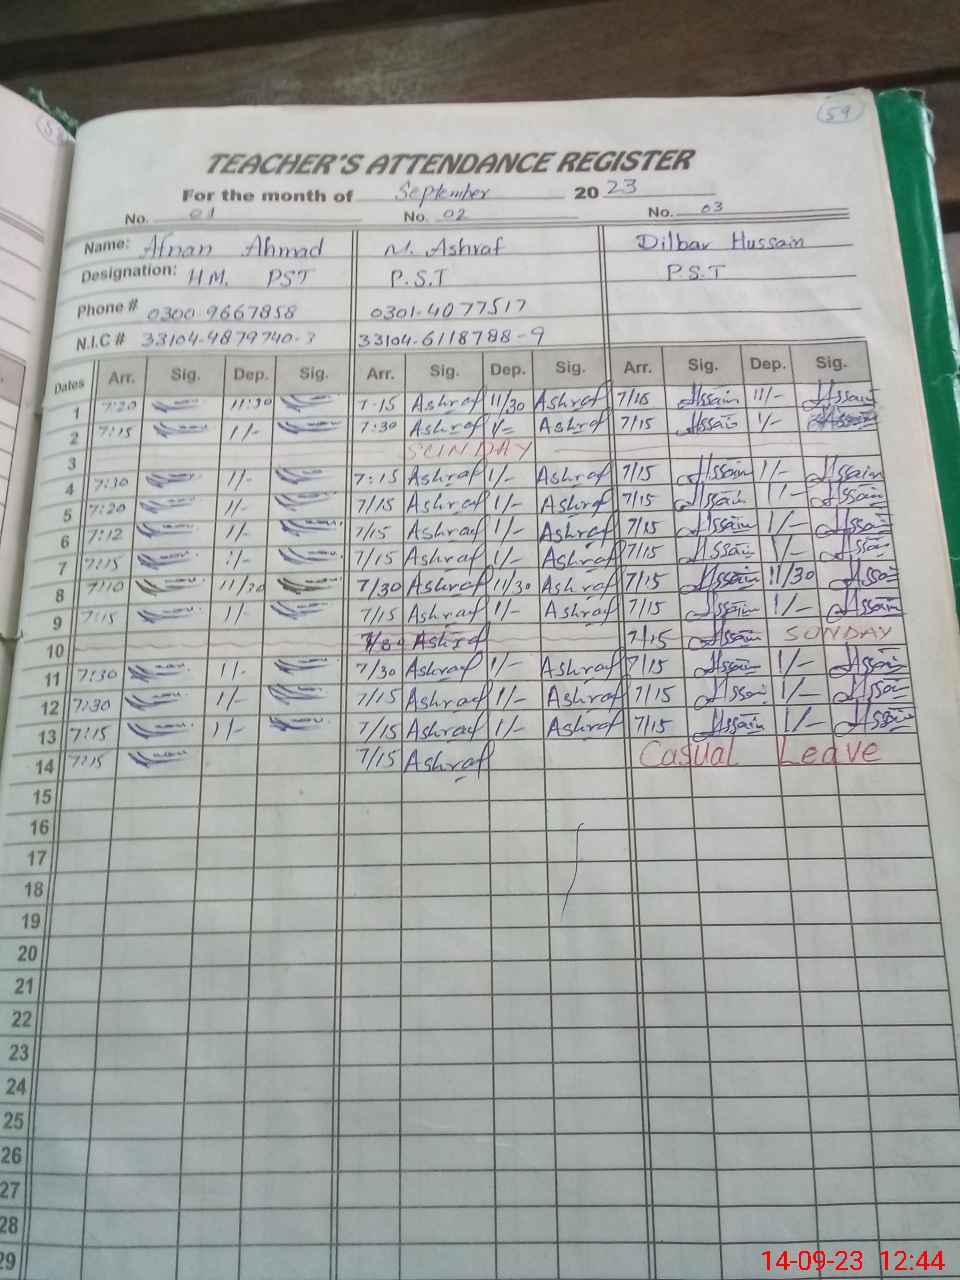 59
TEACHER'S ATTENDANCE REGISTER
For the month of September 2023
No. 01 No. 02 No. 03
Name: Afnan Ahmad M. Ashraf Dilbar Hussain
Designation: H.M. PST P.S.T P.S.T
Phone # 0300-9667858 0301-4077517
N.I.C # 33104-4879740-3 33104-6118788-9
Dates Arr. Sig. Dep. Sig. Arr. Sig. Dep. Sig. Arr. Sig. Dep. Sig.
1 7:20 11:30 7-15 Ashraf 11/30 Ashraf 7/15 Hssain 11/- Hssain
2 7:15 1/- 7:30 Ashraf 1/- Ashraf 7/15 Hssain 1/-
3 SUNDAY
4 7:30 1/- 7:15 Ashraf 1/- Ashraf 7/15 Hssain 1/- Hssain
5 7:20 1/- 7/15 Ashraf 1/- Ashraf 7/15 Hssain 1/- Hssain
6 7:12 1/- 7/15 Ashraf 1/- Ashraf 7/15 Hssain 1/- Hssain
7 7:15 1/- 7/15 Ashraf 1/- Ashraf 7/15 Hssain 1/- Hssain
8 7:10 11/30 7/30 Ashraf 11/30 Ashraf 7/15 Hssain 11/30 Hssain
9 7:15 1/- 7/15 Ashraf 1/- Ashraf 7/15 Hssain 1/- Hssain
10 Ashraf 7/15 Hssain SUNDAY
11 7:30 1/- 7/30 Ashraf 1/- Ashraf 7/15 Hssain 1/- Hssain
12 7:30 1/- 7/15 Ashraf 1/- Ashraf 7/15 Hssain 1/- Hssain
13 7:15 1/- 7/15 Ashraf 1/- Ashraf 7/15 Hssain 1/- Hssain
14 7:15 7/15 Ashraf Casual Leave
15
16
17
18
19
20
21
22
23
24
25
26
27
28
29
14-09-23 12:44